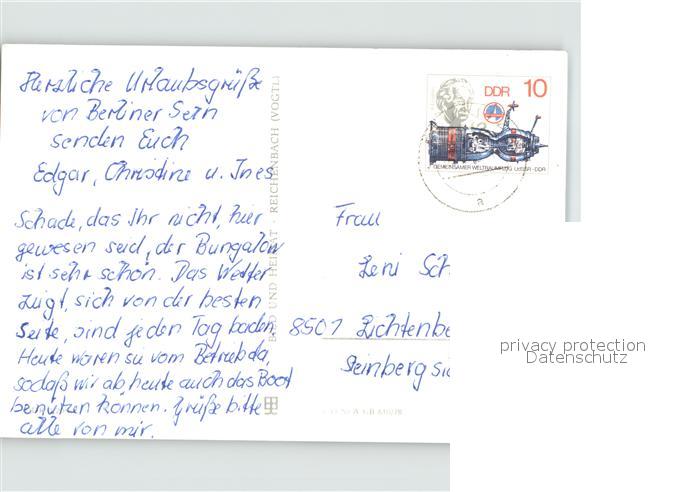 Herzliche Urlaubsgrüße
von Berliner Seen
senden Euch
Edgar, Christine u. Ines
Schade, das Ihr nicht, hier
gewesen seid, der Bungalow
ist sehr schön. Das Wetter
zeigt, sich von der besten
Seite, sind jeden Tag baden.
Heute waren sie vom Betrieb da,
sodaß wir ab heute auch das Boot
benutzen können. Grüße bitte
alle von mir.
BILD UND HEIMAT · REICHENBACH (VOGTL)
DDR 10
GEMEINSAMER WELTRAUMFLUG UdSSR-DDR
a
Frau
Leni Sch
8501 Lichtenbe
Steinberg si
privacy protection
Datenschutz